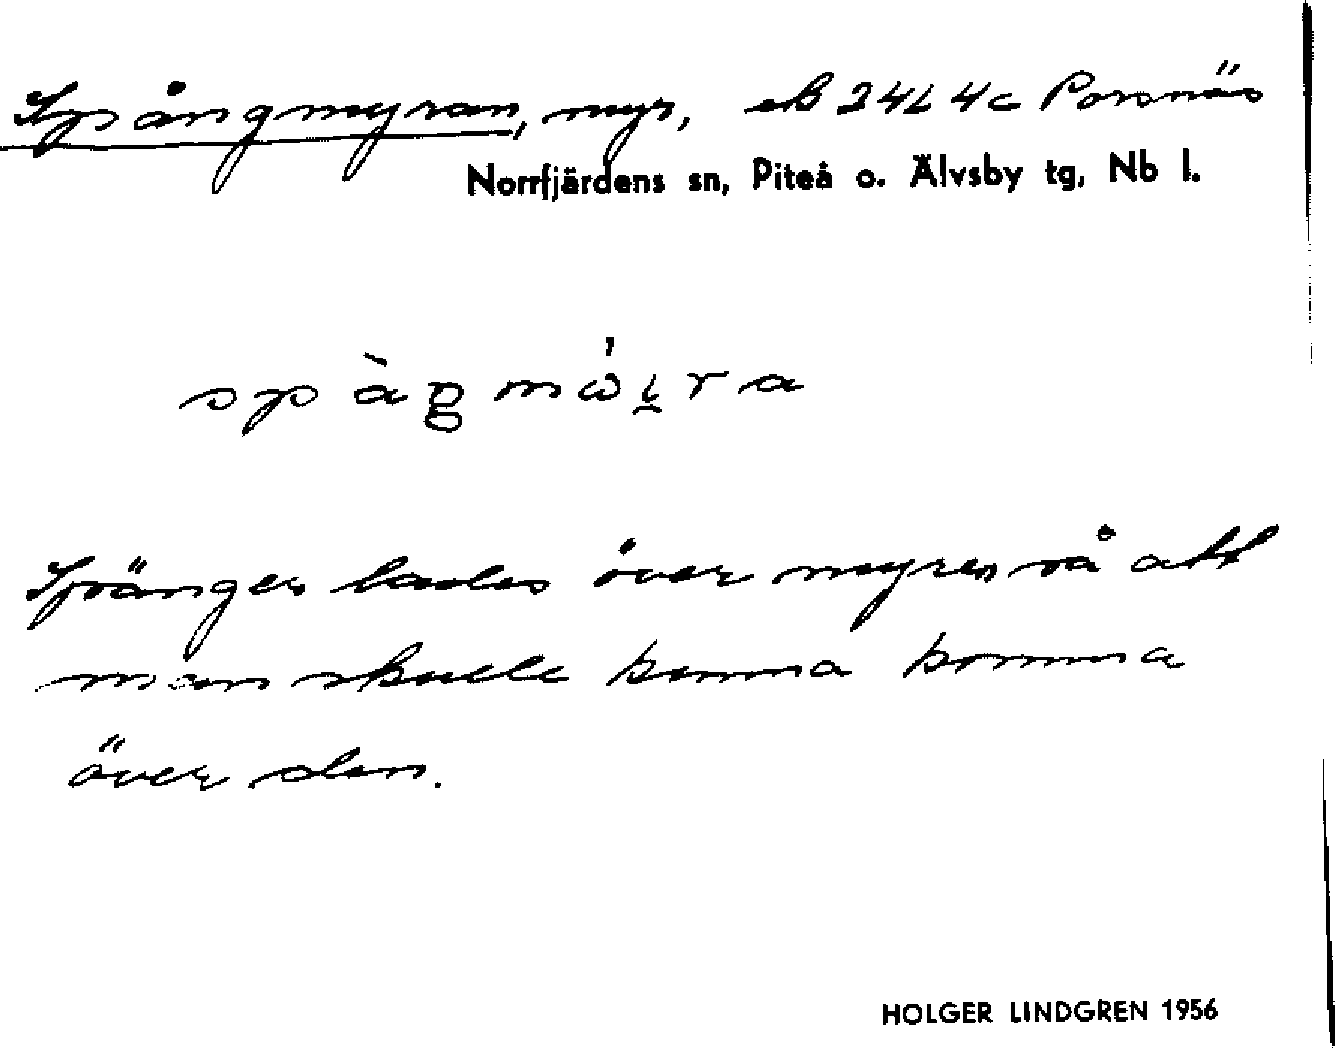 Spångmyran, myr, eB 24L 4c Porsnäs
Norrfjärdens sn, Piteå o. Älvsby tg, Nb l.
Spänger lades över myren så att
man skulle kunna komma
över den.
HOLGER LINDGREN 1956